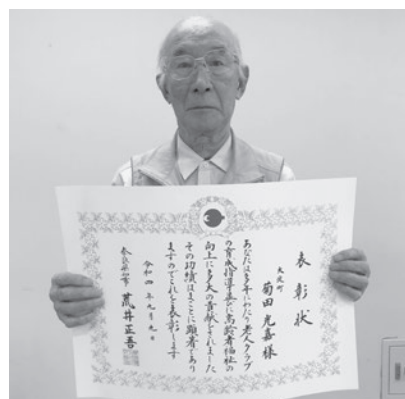 表彰状
大淀町
菊田光嘉様
あなたは多年にわたり老人クラブ
の育成指導並びに高齢者福祉の
向上に多大の貢献をされました
その功績はまことに顕著であり
ますのでこれを表彰します
令和四年九月九日
奈良県知事 荒井正吾